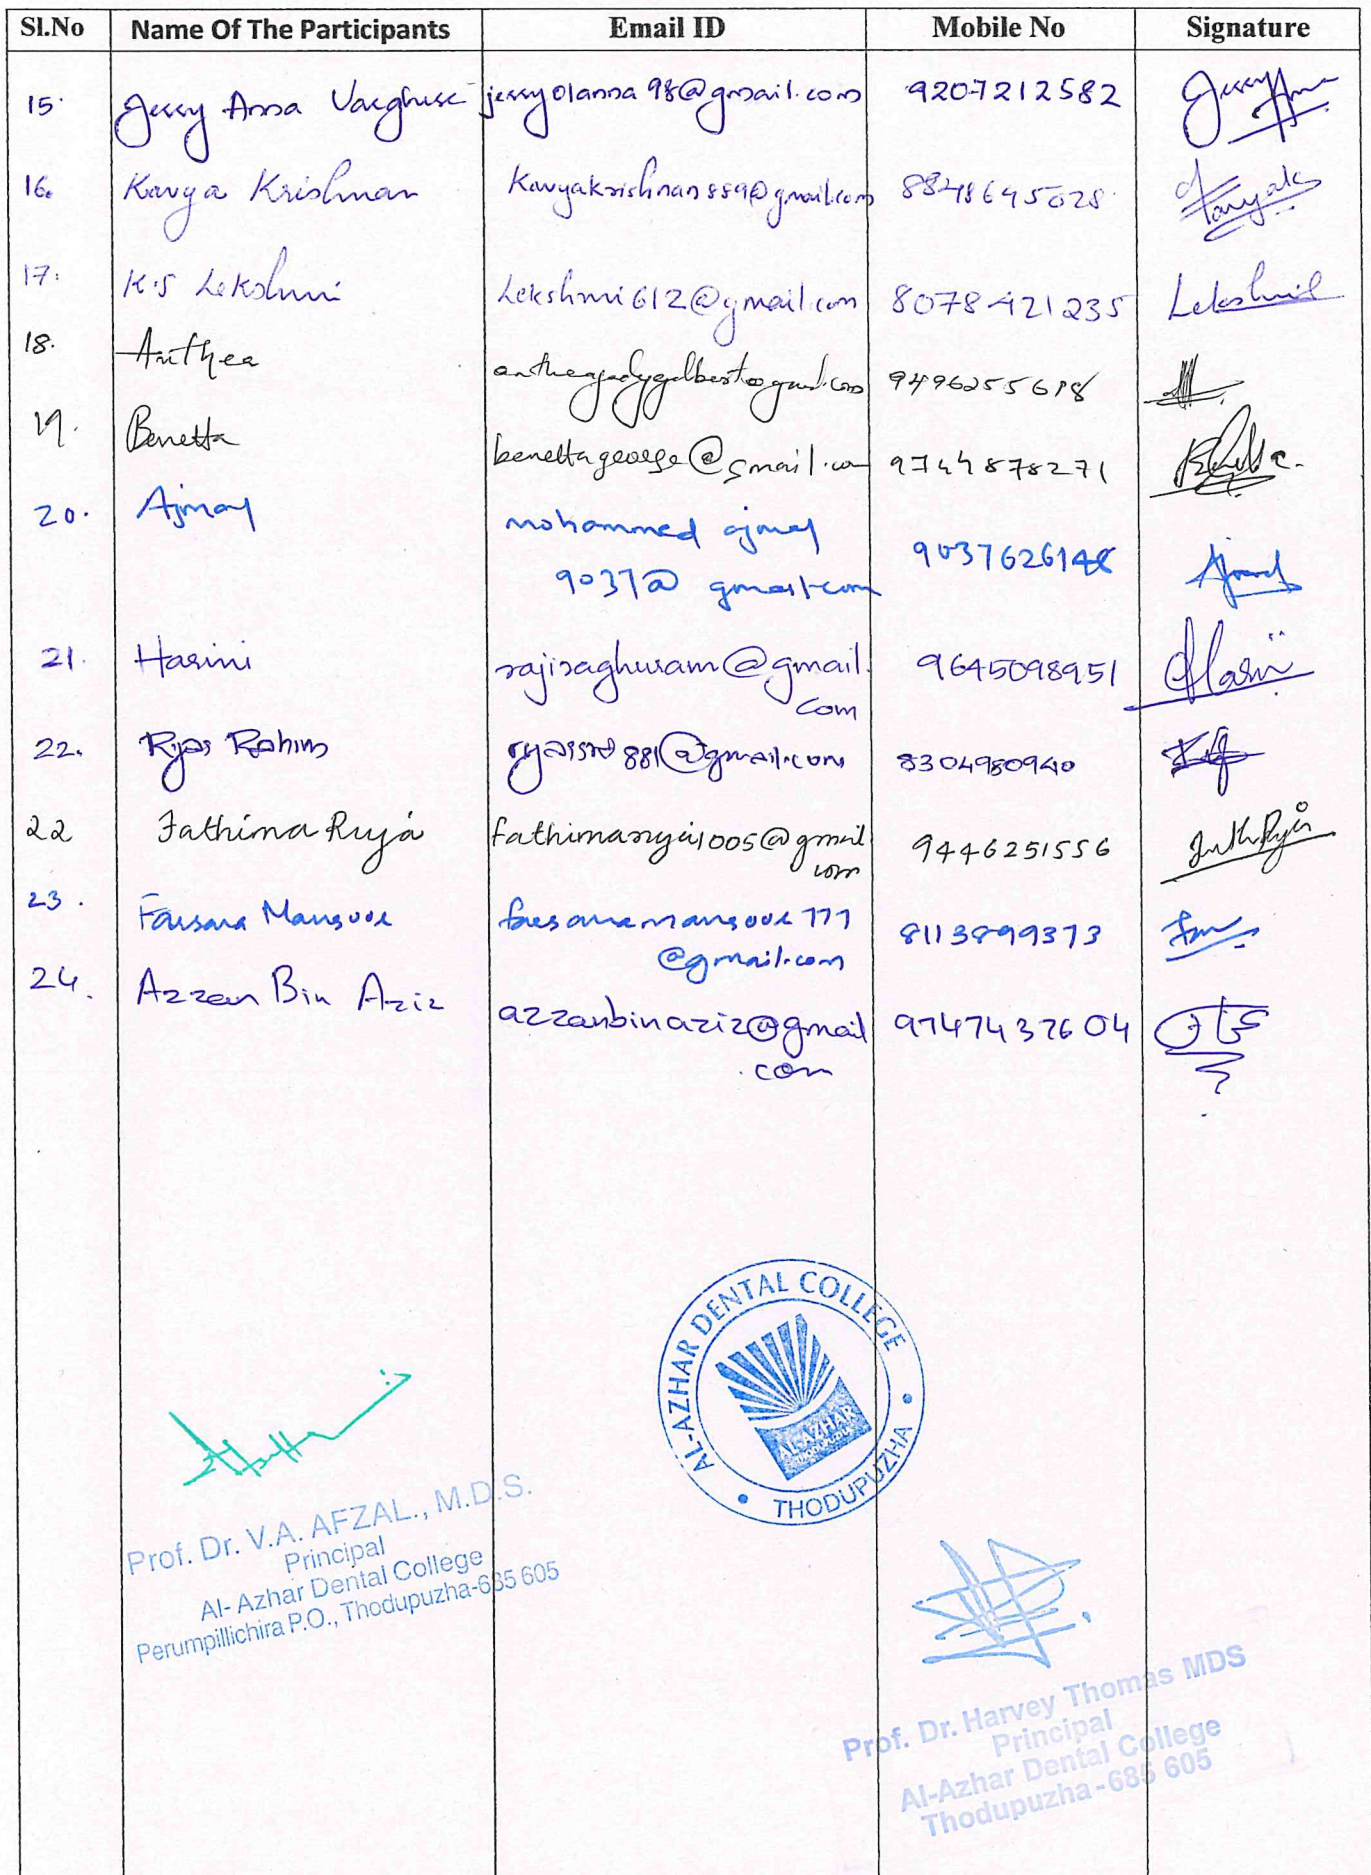 Sl.No Name Of The Participants Email ID Mobile No Signature
15. Jerry Anna Varghese jerry01anna98@gmail.com 9207212582
16. Kavya Krishnan Kavyakrishnan889@gmail.com 8848645028
17. K.S Lekshmi Lekshmi612@gmail.com 8078421235 Lekshmi
18. Anthea 9496255618
19. Benetta benettageorge@gmail.com 9744878271
20. Ajmal mohammed ajmal
9037@ gmail.com 9037626148 Ajmal
21. Harini rajiraghuram@gmail.
com 9645098951 Harini
22. Ryas Rahim 881@gmail.com 8304980940
22 Fathima Ruya fathimaruya1005@gmail
com 9446251556
23. Farsana Mansoor farsanamansoor777
@gmail.com 8113899373
24. Azzan Bin Aziz azzanbinaziz@gmail
.com 9747437604
AL-AZHAR DENTAL COLLEGE
AL-AZHAR
• THODUPUZHA •
Prof. Dr. V.A. AFZAL., M.D.S.
Principal
Al- Azhar Dental College
Perumpillichira P.O., Thodupuzha-685 605
Prof. Dr. Harvey Thomas MDS
Principal
Al-Azhar Dental College
Thodupuzha - 685 605